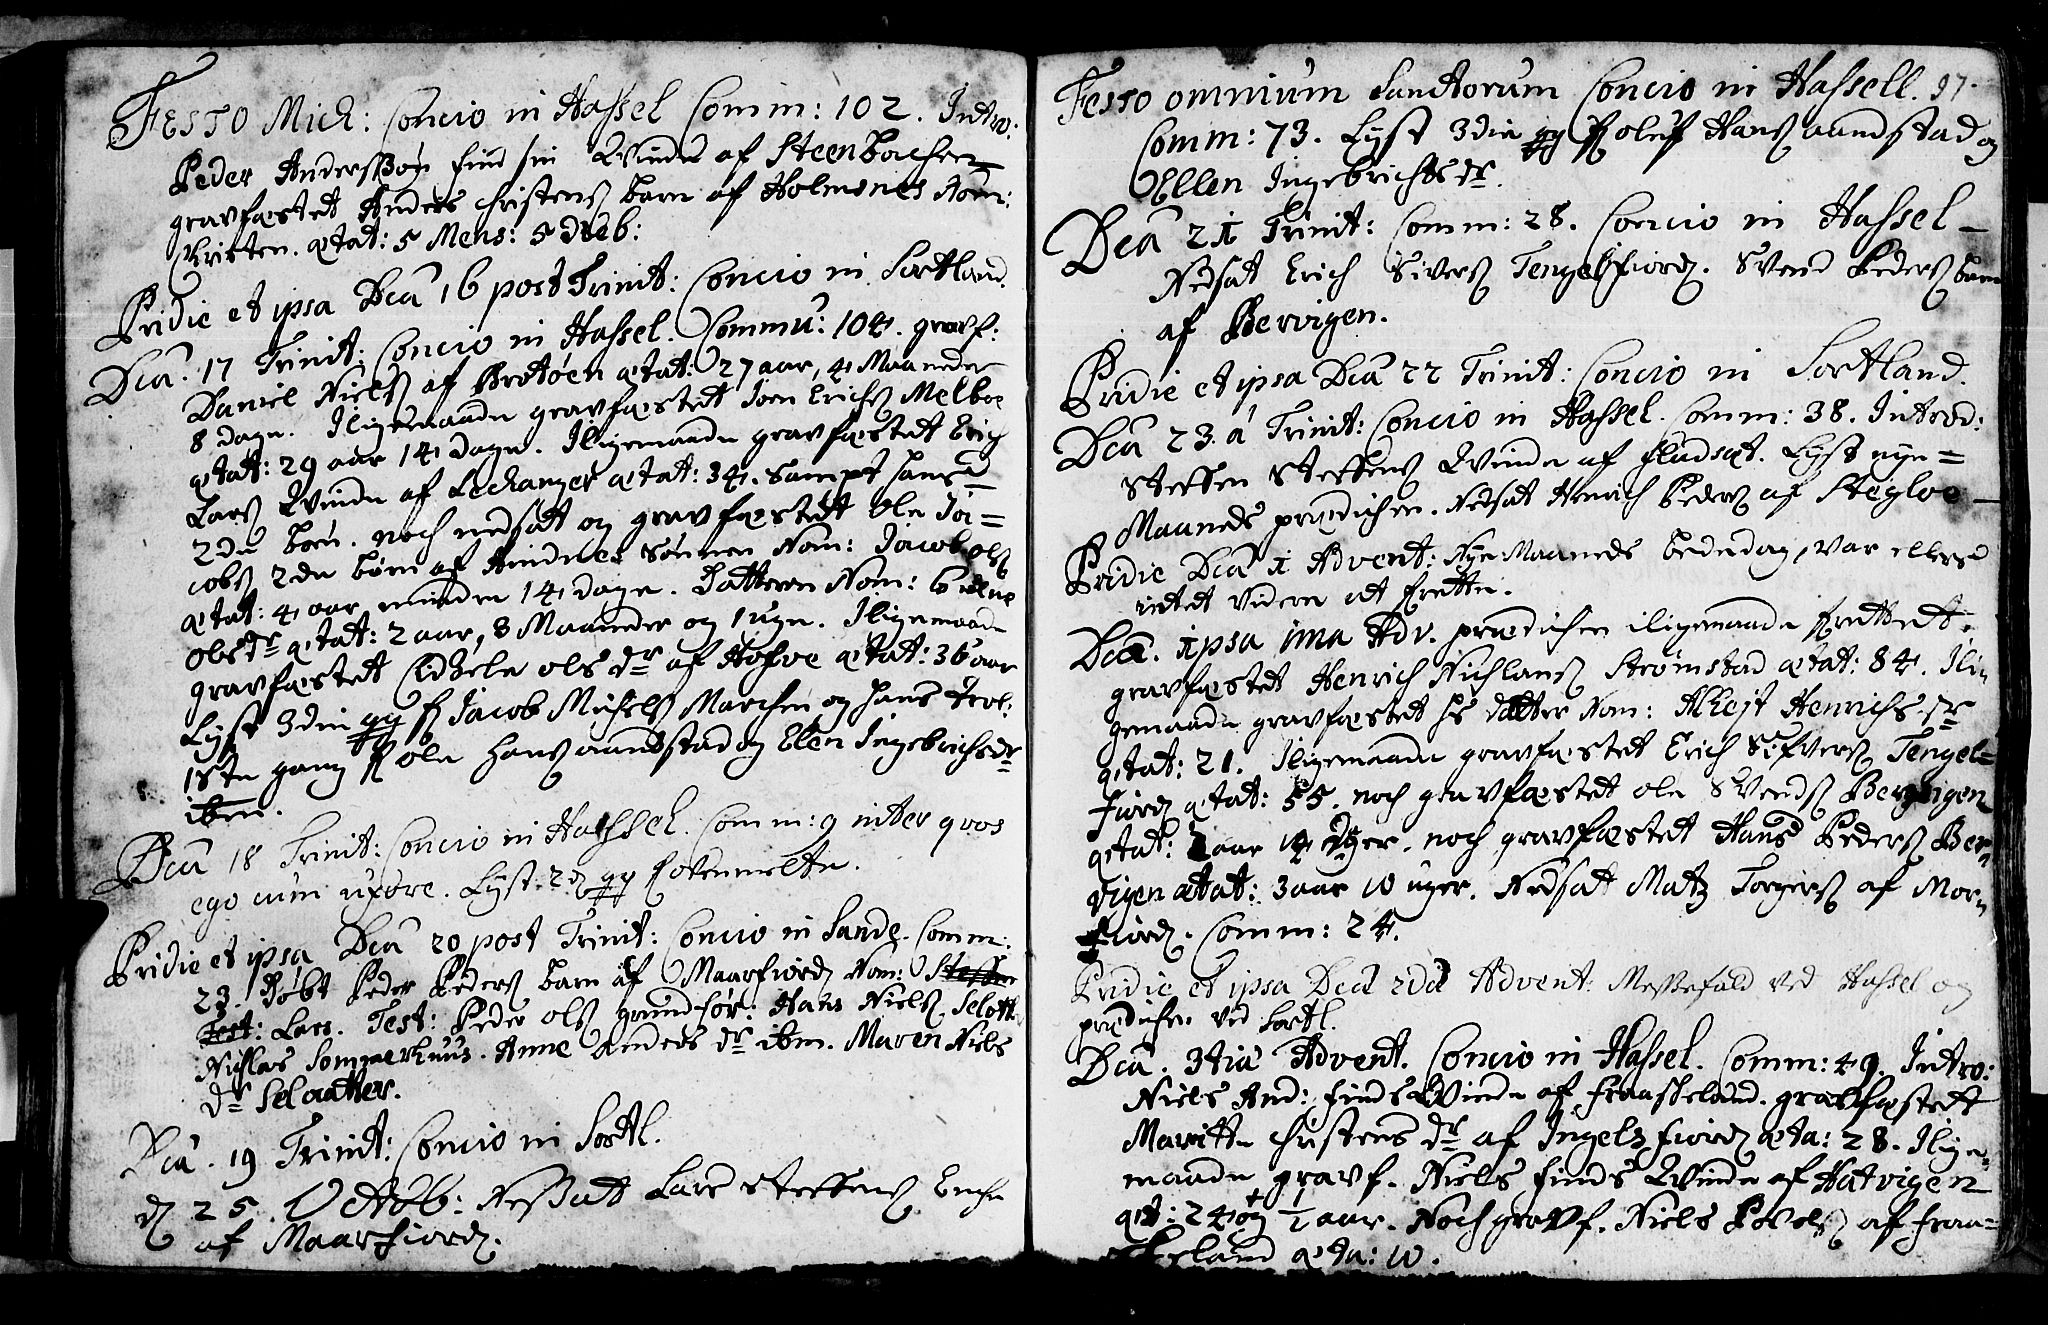 FESTO Mich: Concio in Hassel Comm: 102. Introd:
Peder Anderssøn find sin Qvinde af Steenbachen
gravfæstet Anders Christens barn af Holmsnes Nom:
Kirsten. ætat: 5 Mens: 5 dieb:
Pridie et ipsa Dca 16 post Trinit: Concio in Sortland.
Dca. 17 Trinit: Concio in Hassel. Commu: 104. gravf:
Daniel Niels af Brotøen ætat: 27 aar, 4 Maaneder
8 dage. Iligemaade gravfæstet Joen Erichs Melboe
ætat: 29 aar 14 dage. Iligemaade gravfæstet Erich
Lars Qvinde af Lechanger ætat: 34. sampt hans
2de børn. noch nedsatt og gravfæstet Ole Ja=
cobs 2de børn af Aindnes Sønnen Nom: Jacob ols
ætat: 4 aar minder 14 dage. Datteren Nom:
Olsdr ætat: 2 aar, 8 Maaneder og 1 uge. Iligemaade
gravfæstet Sidzele olsdr af Hofve ætat: 36 aar
Lyst 3die gg f Jacob Michels Marchen og hans Trol:
1ste gang f ole Hans aandstad og Elen Ingebrichsdr
ibm.
Dca 18 Trinit: Concio in Hassel. Comm: 9 inter qvos
ego cum uxore. Lyst 2d gg
Pridie et ipsa Dca 20 post Trinit: Concio in Sande. Comm:
23. Døbt Peder Peders barn af Maarfiord Nom: Steffen
Test: Lars. Test: Peder ols grundfor: Hans Niels Selott
Nichlas Sommerhuus. Anne Andersdr ibm. Maren Niels
dr Selaatter.
Dca. 19 Trinit: Concio in Sortl.
d 25. Octob: Nessatt Lars Steffens Enche
af Maarfiord.
Festo omnium Sanctorum Concio in Hassell. 97.
Comm: 73. Lyst 3die gg f Oluf Hans aandstad og
Ellen Ingebrichtsdr.
Dca 21 Trinit: Comm: 28. Concio in Hassel
Nedsat Erich Sivers Tengelfiord. Svend Peders barn
af Bervigen.
Pridie et ipsa Dca 22 Trinit: Concio in Sortland.
Dca 23.a Trinit: Concio in Hassel. Comm: 38. Introd:
Steffen Steffens Qvinde af Fladsæt. Lyst nye=
Maaneds prædichen. Nedsat Henrich Peders af Stegloe
Pridie Dca 1 Advent: Nye Maaneds bededag, var ellers
intet videre at forrette.
Dca. ipsa 1ma Adv. prædichen iligemaade forrettet.
gravfæstet Henrich Nichlans Strømstad ætat: 84. Ili
gemaade gravfæstet hs datter Nom: Alhejt Henrichsdr
ætat: 21. Iligemaade gravfæstet Erich Sifvers Tengel=
fiord ætat: 55. noch gravfæstet ole Svends Bervigen
ætat: 2 aar 14 uger. noch gravfæstet Hans Peders Ber
vigen ætat: 3 aar 10 uger. Nedsat Matz Torgers af Mor
fiord. Comm: 24.
Pridie et ipsa Dca 2da Advent: Messefald ved Hassel og
prædichen ved Sortl.
Dca. 3tia Advent. Concio in Hassel. Comm: 49. Intro:
Niels And: finds Qvinde af Fraaskeland. gravfæstet
Maritte Christensdr af Ingelsfiord æta: 28. Ilige
maade gravf. Niels finds Qvinde af Hatvigen
æt: 24 og ½ aar. Noch gravf. Niels Povels af Fraa=
skeland æta: 10.